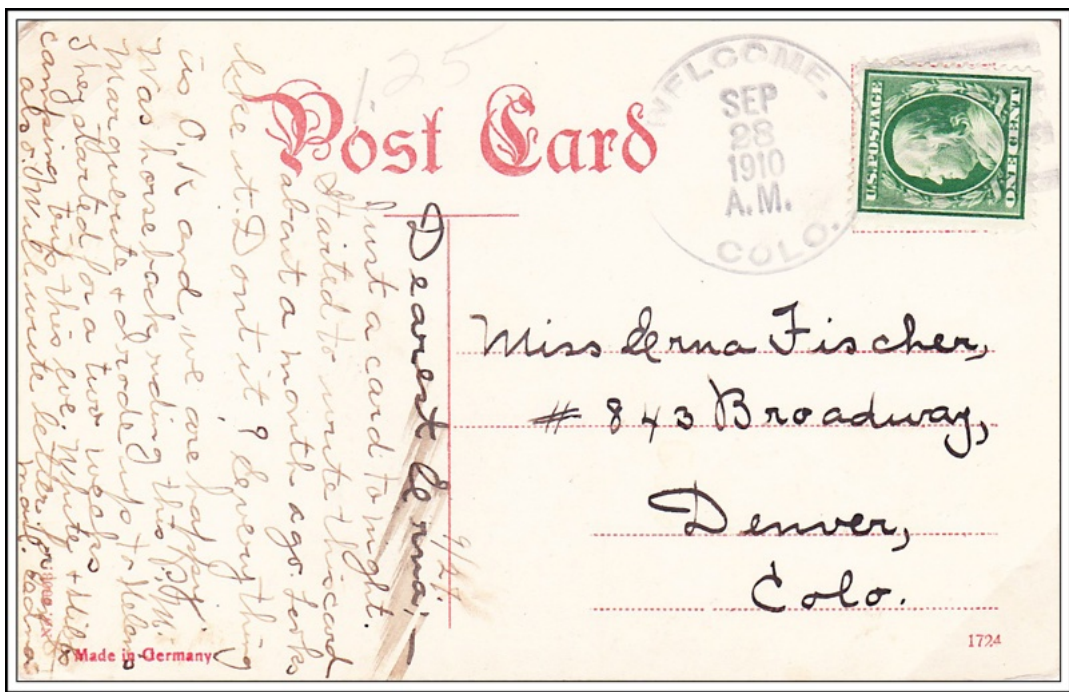 125
Post Card
WELCOME,
SEP
28
1910
A.M.
COLO.
U.S. POSTAGE
ONE CENT
Miss Erna Fischer,
# 843 Broadway,
Denver,
Colo.
9/27.
Dearest Erna;—
Just a card to-night.
Started to write this card
about a month ago. Looks
like it. Dont it? Everything
is O.K. and we are happy.
Was horseback riding this P.M.
Marguerite & I rode up to
They started for a two weeks
camping trip this eve. White &
also. Will write letter
mail.
Made in Germany
1724